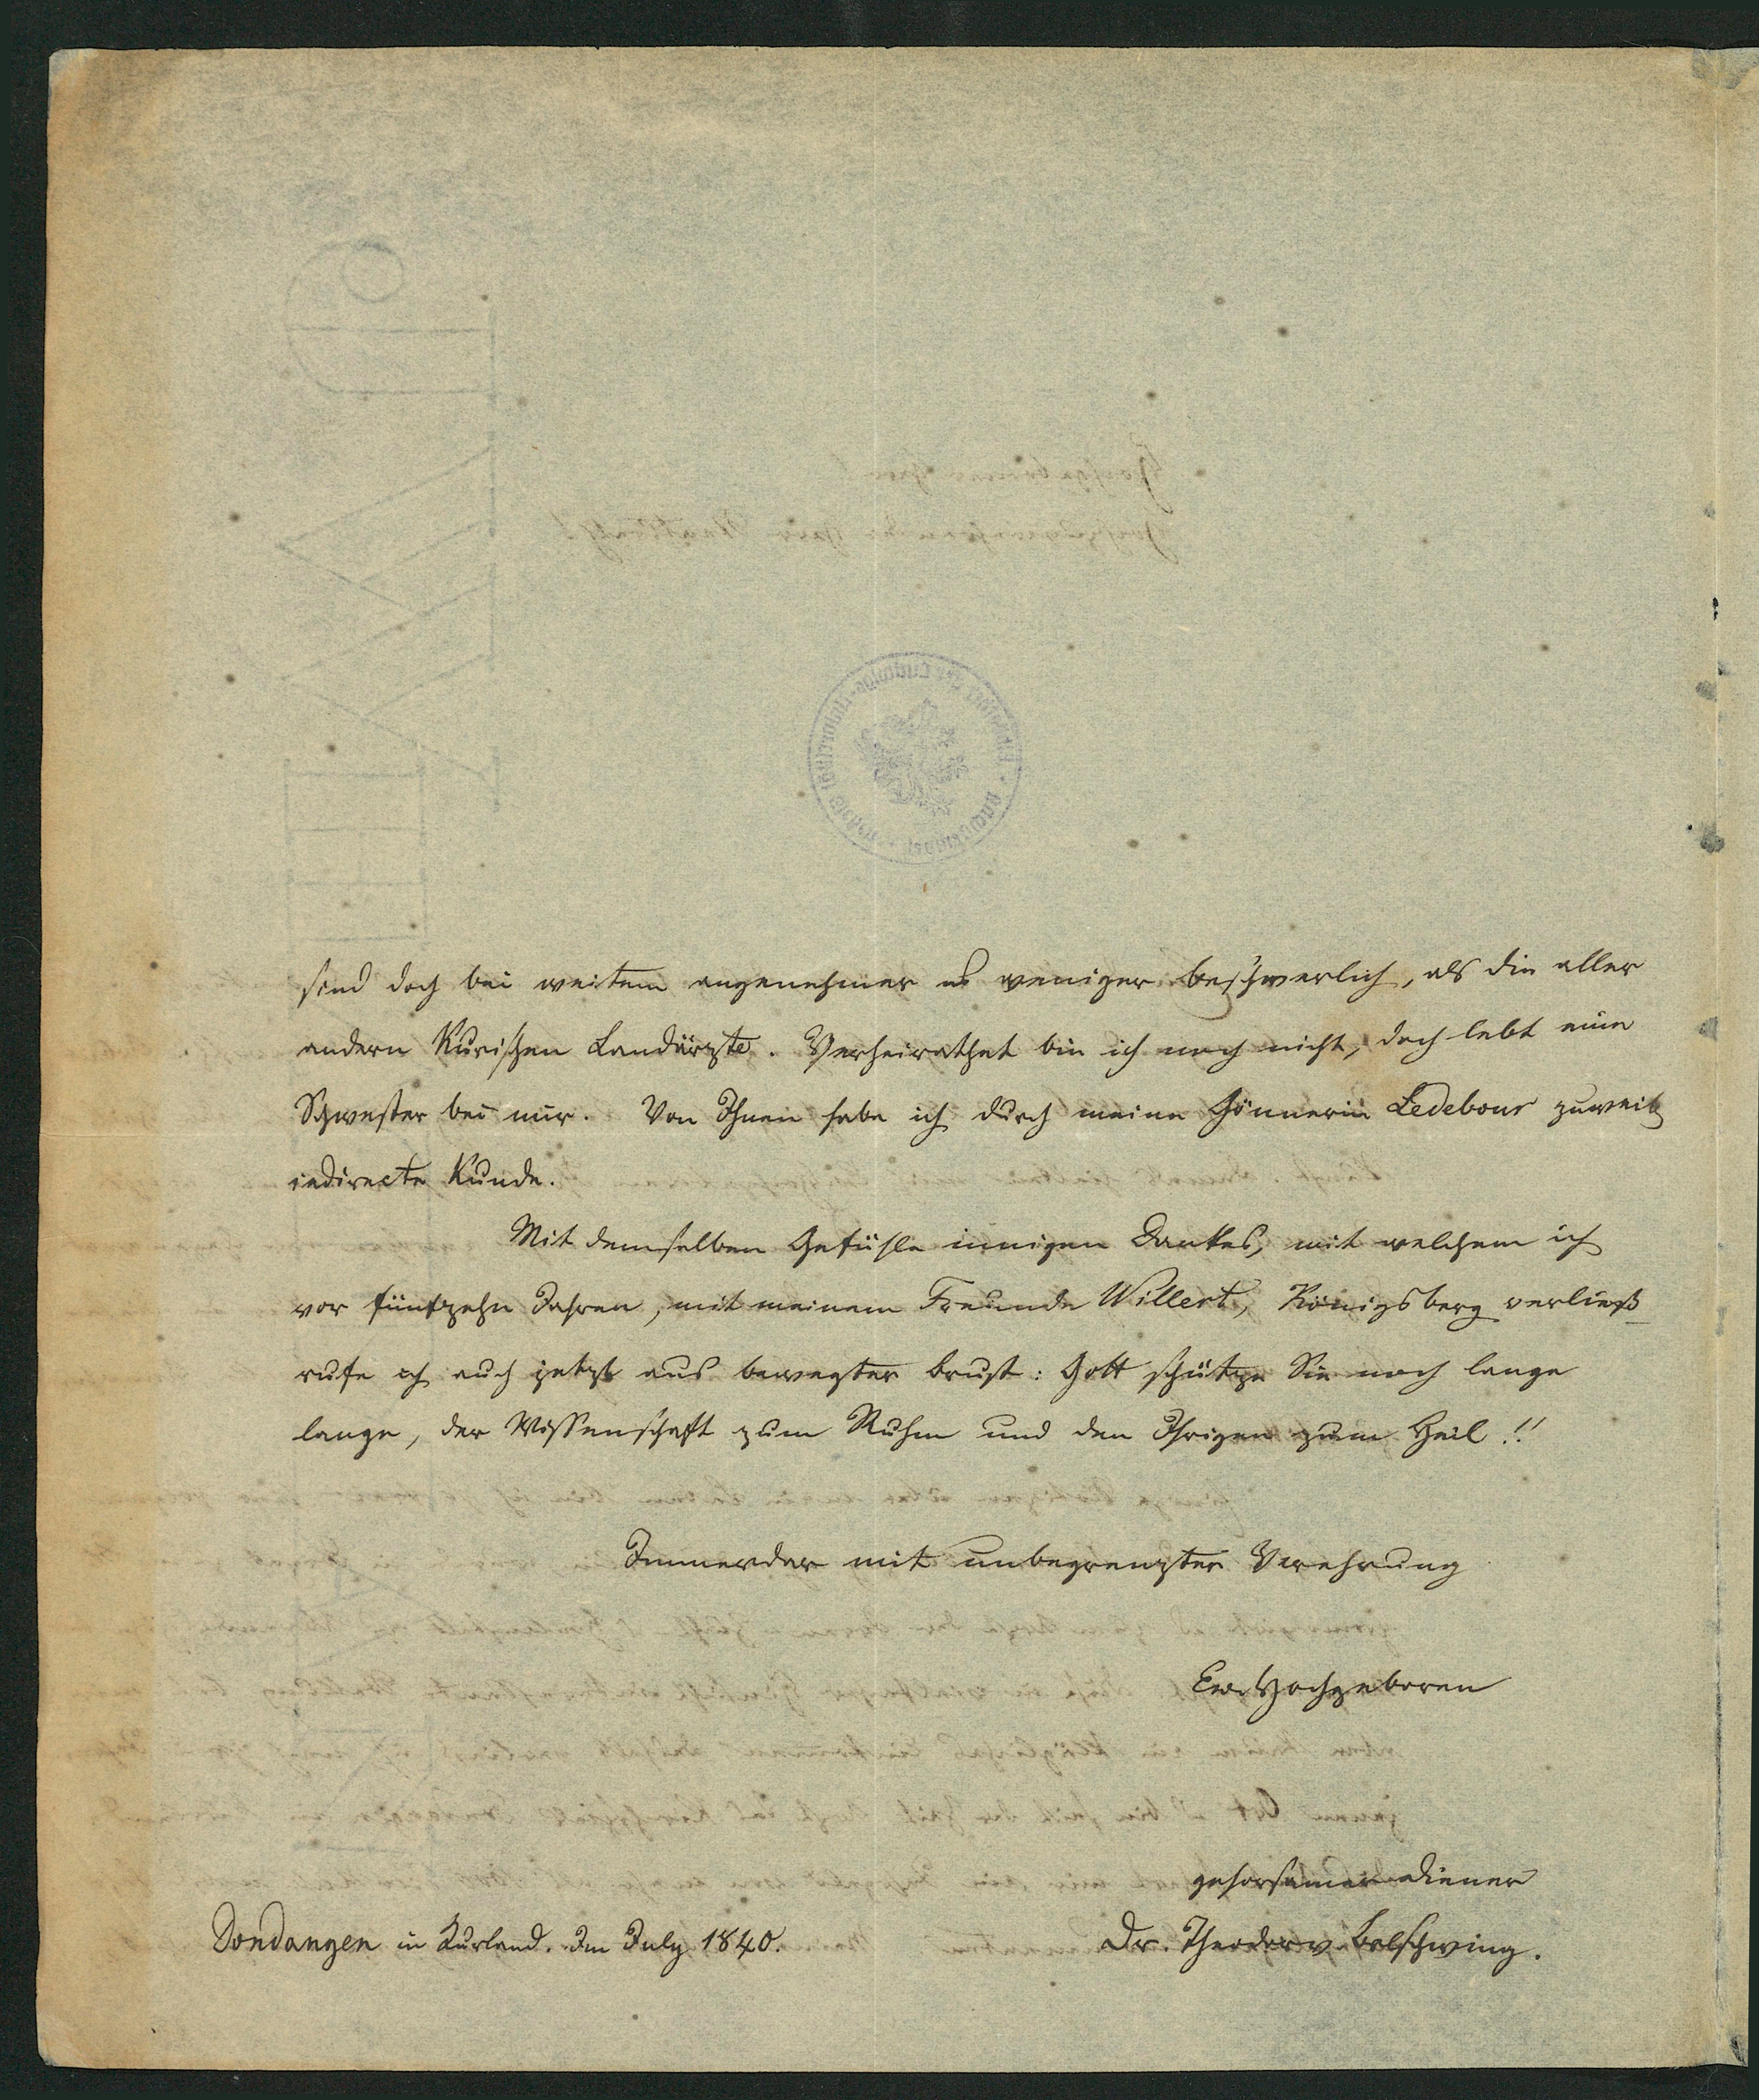 sind doch bei weitem angenehmer u weniger beschwerlich, als die aller
andern Kurischen Landärzte. Verheirathet bin ich noch nicht, doch lebt eine
Schwester bei mir. Von Ihnen habe ich durch meine Gönnerin Ledebour zuweil
indirecte Kunde.
Mit demselben Gefühle innigen Dankes, mit welchem ich
vor fünfzehn Jahren, mit meinem Freunde Willert, Königsberg verließ
rufe ich auch jetzt aus bewegter Brust: Gott schütze Sie noch lange
lange, der Wissenschaft zum Ruhm und den Ihrigen zum Heil!!
Immerdar mit unbegrenzter Verehrung
Ew. Hochgeboren
gehorsamer Diener
Dondangen in Kurland. Im July 1840.
Dr. Theodor v Bolschwing.